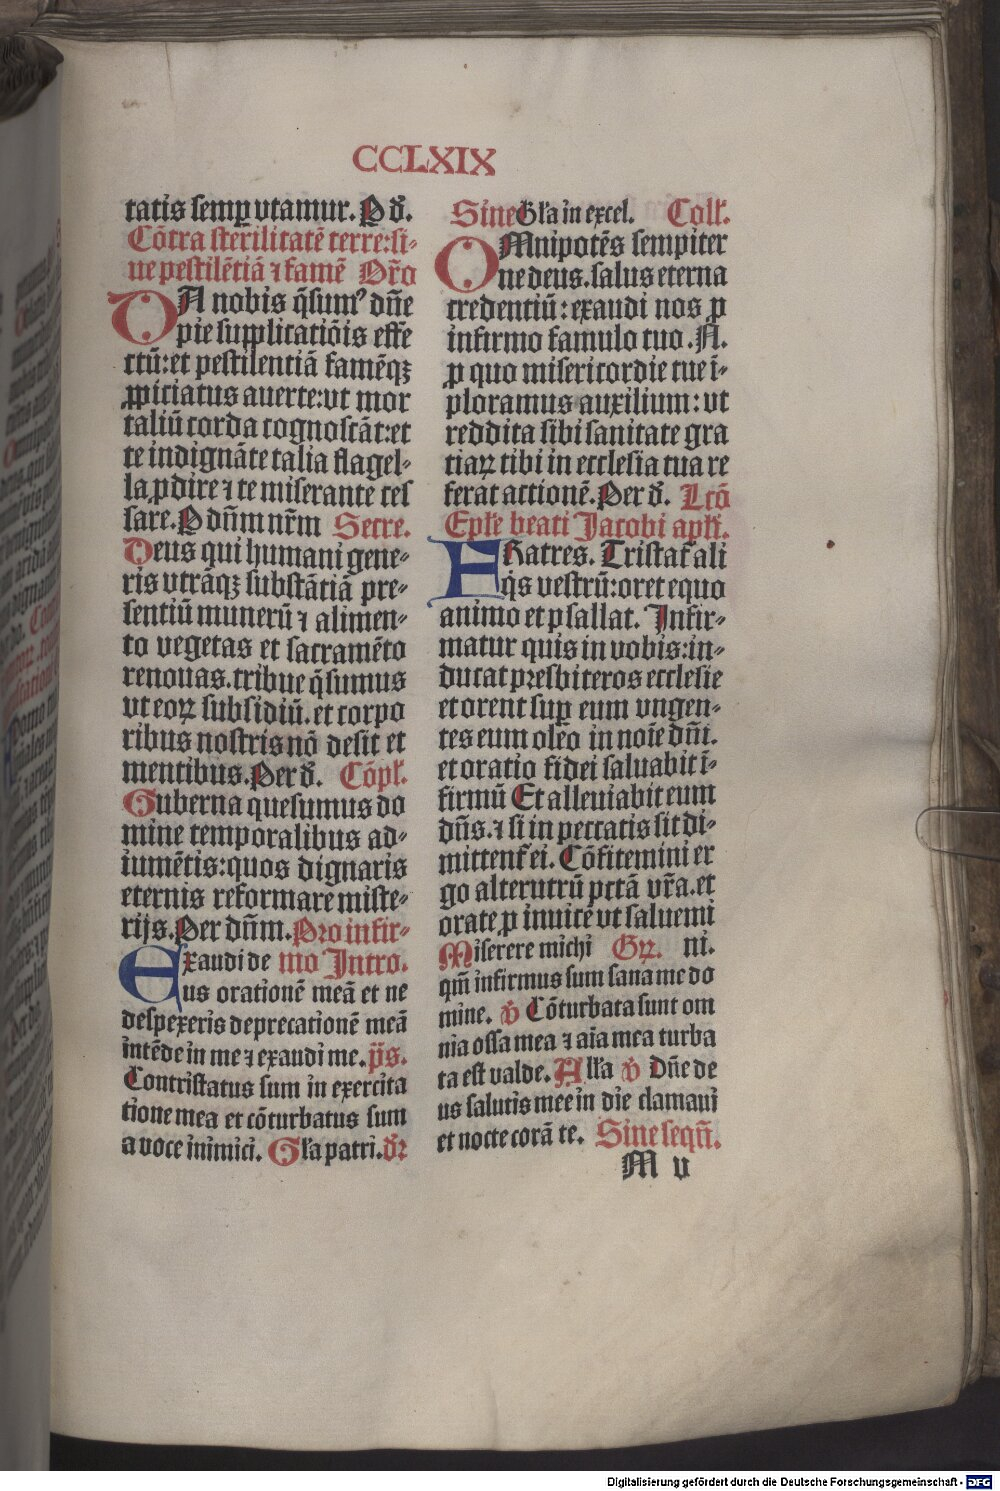 CCLXIX
tatis semꝑ vtamur. P dᷣ.
Cōtra sterilitatē terre:si-
ue pestilētiā ⁊ famē Or̄o
DA nobis q̄sumꝰ dn̄e
pie supplicatiōis effe
ctū:et pestilentiā famēqꝫ
ꝓpiciatus auerte:vt mor
taliū corda cognoscāt:et
te indignāte talia flagel-
la ꝓdire ⁊ te miserante ces
sare. P dn̄m nr̄m Secre.
Deus qui humani gene-
ris vtrāqꝫ substātiā pre-
sentiū munerū ⁊ alimen-
to vegetas et sacramēto
renouas. tribue q̄sumus
vt eoꝝ subsidiū. et corpo
ribus nostris nō desit et
mentibus. Per dᷣ. Cōpł.
Guberna quesumus do
mine temporalibus ad-
iumētis:quos dignaris
eternis reformare miste-
rijs. Per dn̄m. Pro infir-
Exaudi de mo Intro.
us orationē meā et ne
despexeris deprecationē meā
intēde in me ⁊ exaudi me. p̄s.
Contristatus sum in exercita
tione mea et cōturbatus sum
a voce inimici. Gła patri. dꝛ
Sine Gła in excel. Coll.
OMnipotēs sempiter
ne deus. salus eterna
credentiū: exaudi nos ꝓ
infirmo famulo tuo .N.
ꝓ quo misericordie tue ī-
ploramus auxilium: vt
reddita sibi sanitate gra
tiaꝝ tibi in ecclesia tua re
ferat actionē. Per dᷣ. Lcō
Epłe beati Jacobi apłi.
FRatres. Tristat̄ ali
q̇s vestrū:oret equo
animo et psallat. Infir-
matur quis in vobis:in-
ducat presbiteros ecclesie
et orent suꝑ eum vngen-
tes eum oleo in noīe dn̄i.
et oratio fidei saluabit ī-
firmū Et alleuiabit eum
dn̄s. ⁊ si in peccatis sit di-
mittent̄ ei. Cōfitemini er
go alterutrū pctā vr̄a. et
orate ꝓ inuicē vt saluemi
Miserere michi Gꝝ. ni.
qm̄ infirmus sum sana me do
mine. v̇ Cōturbata sunt om
nia ossa mea ⁊ aīa mea turba
ta est valde. Alła v̇ Dn̄e de
us salutis mee in die clamaui
et nocte corā te. Sine seqn̄.
M v
Digitalisierung gefördert durch die Deutsche Forschungsgemeinschaft - DFG